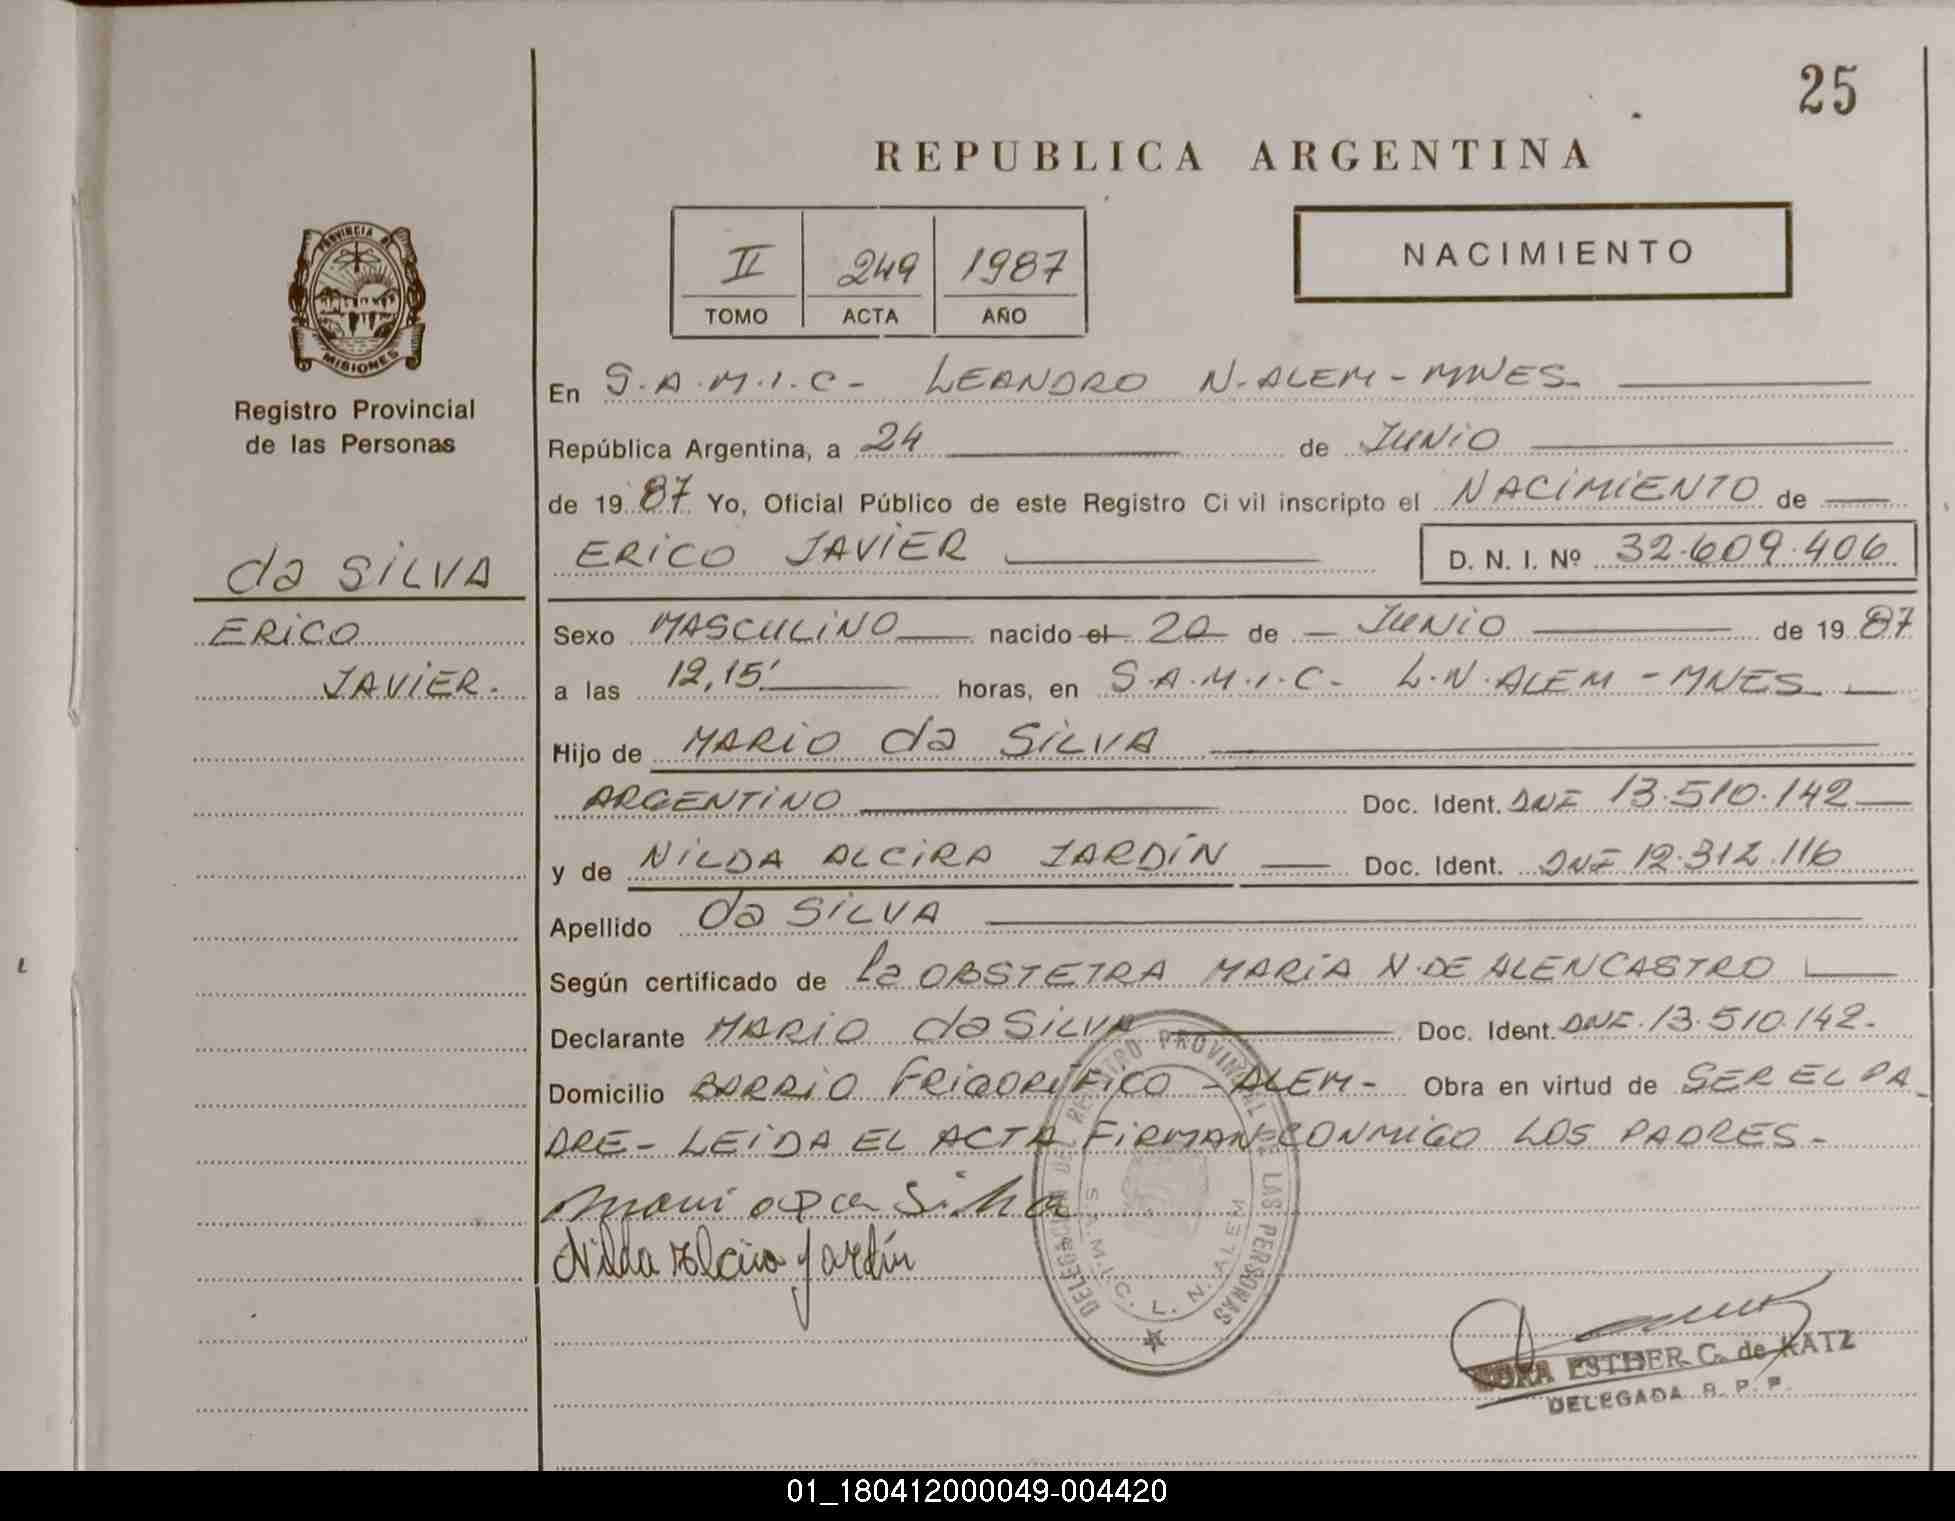 25
REPUBLICA ARGENTINA
II 249 1987
TOMO ACTA AÑO
NACIMIENTO
PROVINCIA DE
MISIONES
Registro Provincial
de las Personas
da SILVA
ERICO
JAVIER.
En S.A.M.I.C- LEANDRO N. ALEM - MNES.
República Argentina, a 24 de JUNIO
de 19 87 Yo, Oficial Público de este Registro Civil inscripto el NACIMIENTO de
ERICO JAVIER D. N. I. Nº 32.609.406
Sexo MASCULINO nacido el 20 de JUNIO de 19 87
a las 12,15' horas, en S.A.M.I.C- L.N.ALEM - MNES
Hijo de MARIO da SILVA
ARGENTINO Doc. Ident. DNI 13.510.142
y de NILDA ALCIRA JARDÍN Doc. Ident. DNI 12.312.116
Apellido da SILVA
Según certificado de la OBSTETRA MARÍA N. DE ALENCASTRO
Declarante MARIO da SILVA Doc. Ident. DNI. 13.510.142.
Domicilio BARRIO FRIGORÍFICO - ALEM- Obra en virtud de SER EL PA
DRE- LEIDA EL ACTA FIRMAN CONMIGO LOS PADRES-
Mario Da Silva
Nilda Alcira Jardín
DELEGACION DEL REGISTRO PROVINCIAL DE LAS PERSONAS
S.A.M.I.C. L. N. ALEM
ESTHER C. de KATZ
DELEGADA R. P. P.
01_180412000049-004420